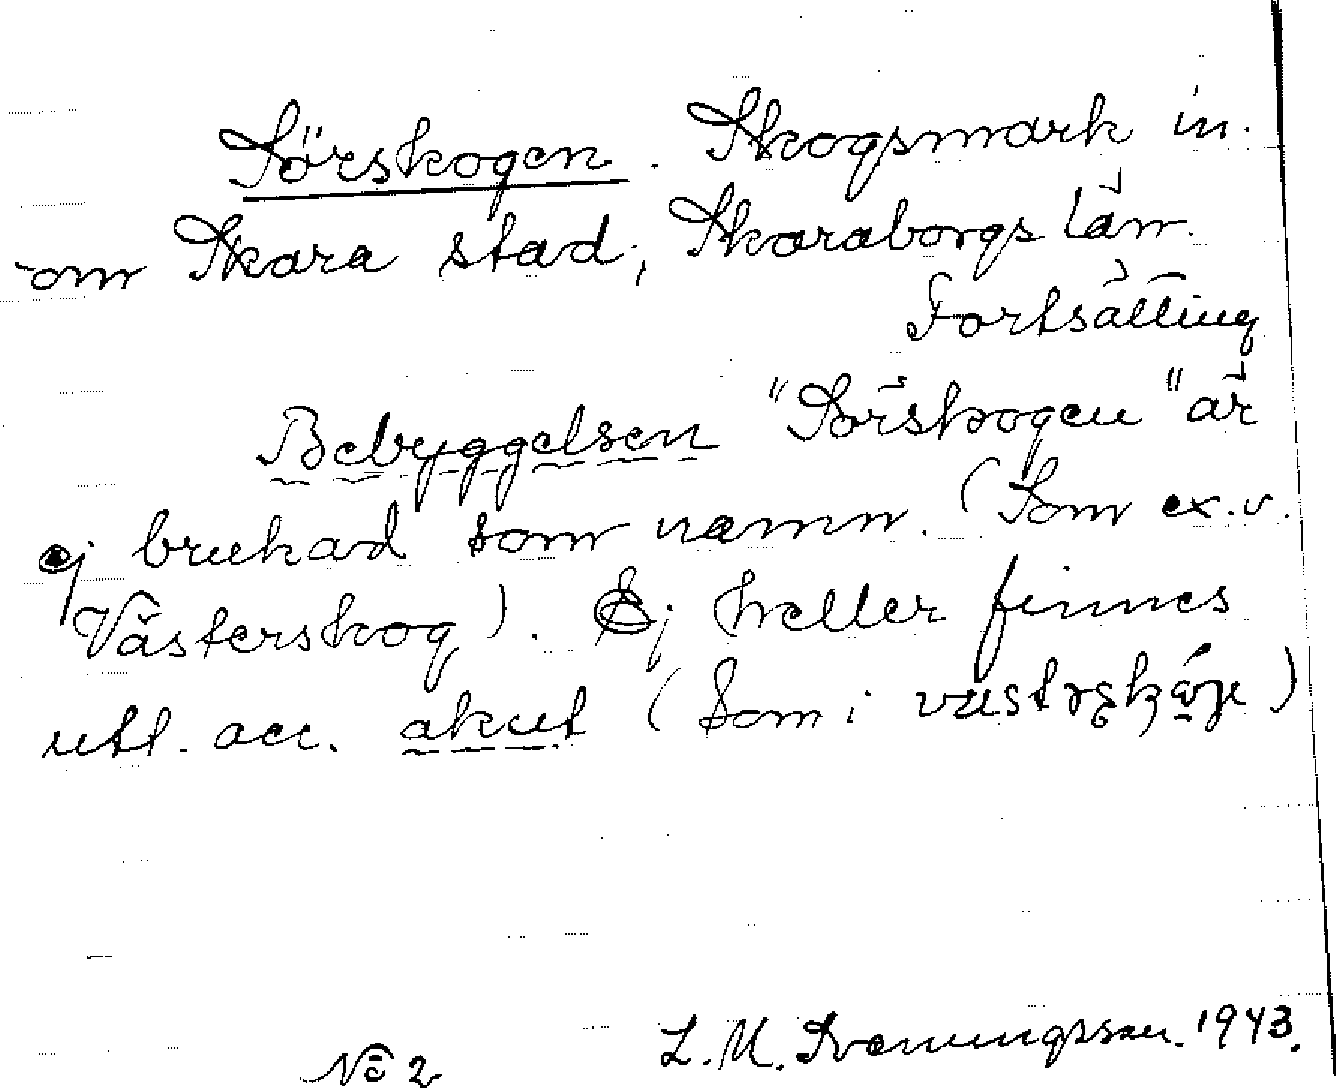 Sörskogen. Skogsmark in-
om Skara stad, Skaraborgs län.
Fortsättning
Bebyggelsen "Sörskogen" är
ej brukad som namn. (Som ex.v.
Västerskog). Ej heller finnes
utt. acc. akut (som i
L. M. Svenungsson. 1943.
No 2